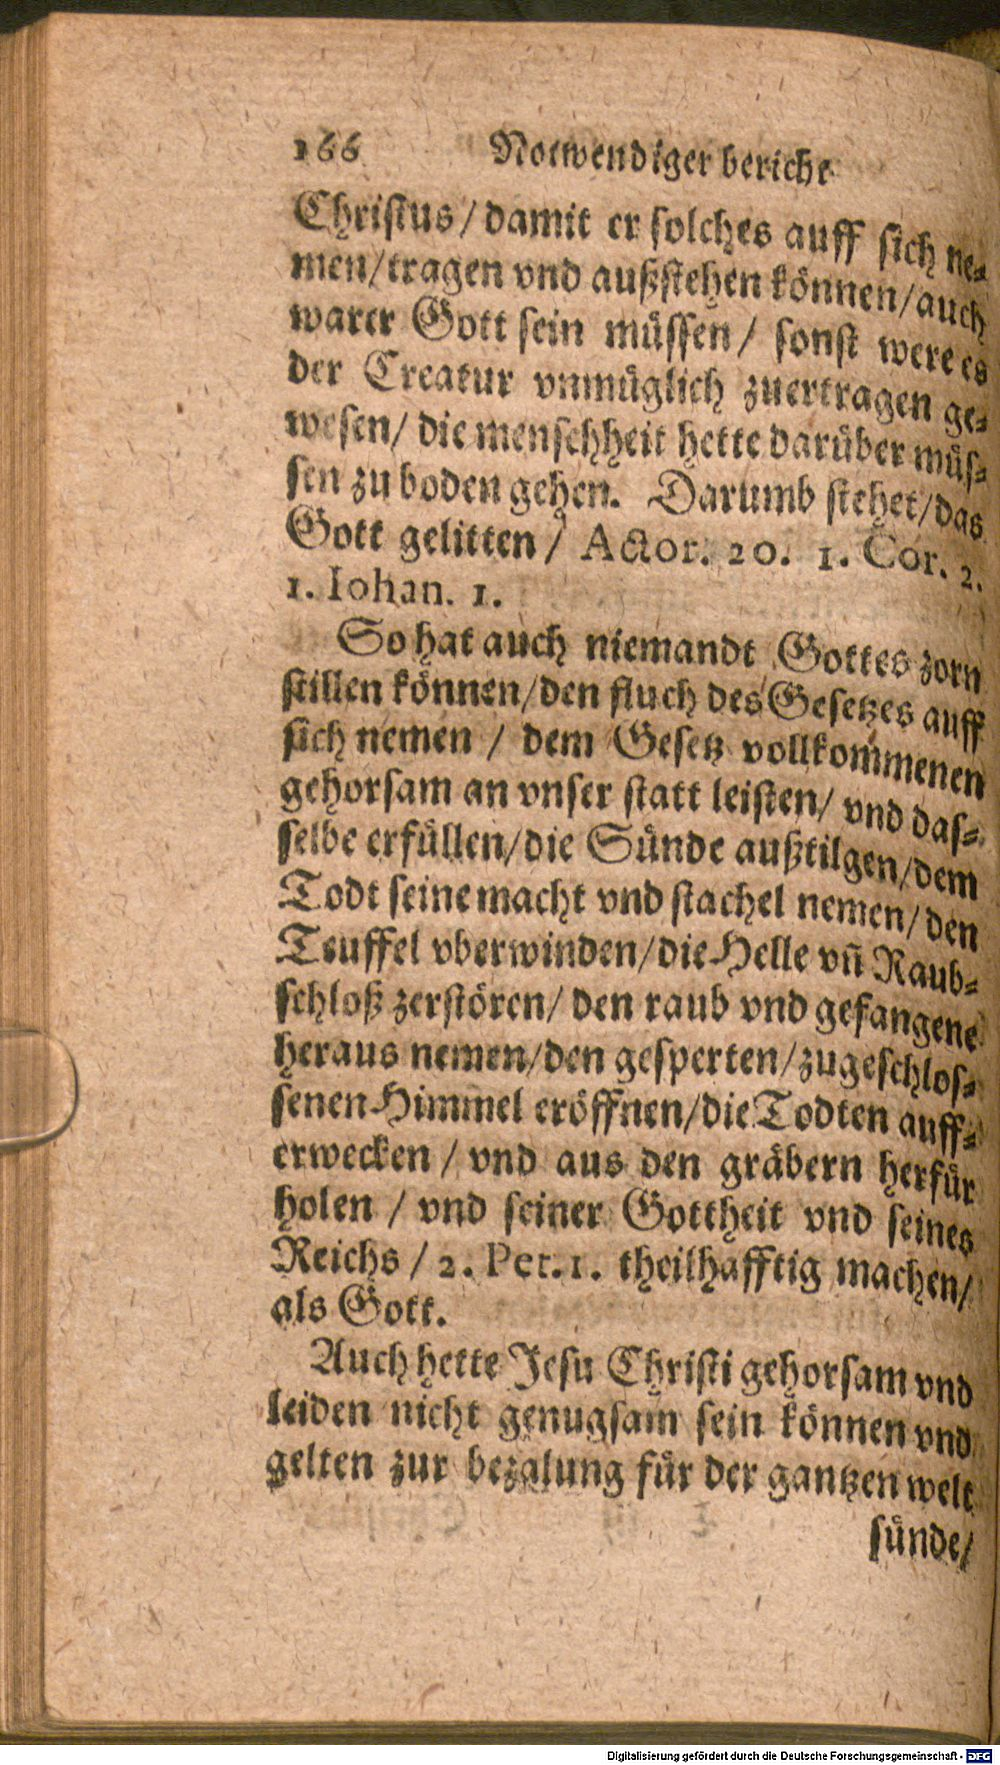 166 Notwendiger bericht
Christus / damit er solches auff sich ne-
men/tragen vnd außstehen können/auch
warer Gott sein müssen / sonst were es
der Creatur vnmüglich zuertragen ge-
wesen/ die menschheit hette darüber müs-
sen zu boden gehen. Darumb stehet/das
Gott gelitten / Actor. 20. 1. Cor. 2.
1. Iohan. 1.
So hat auch niemandt Gottes zorn
stillen können/den fluch des Gesetzes auff
sich nemen / dem Gesetz vollkommenen
gehorsam an vnser statt leisten/ vnd das-
selbe erfüllen/die Sünde außtilgen/dem
Todt seine macht vnd stachel nemen/den
Teuffel vberwinden/die Helle vñ Raub-
schloß zerstören/ den raub vnd gefangene
heraus nemen/den gesperten/zugeschlos-
senen Himmel eröffnen/die Todten auff-
erwecken / vnd aus den gräbern herfür
holen / vnd seiner Gottheit vnd seines
Reichs / 2. Pet. 1. theilhafftig machen/
als Gott.
Auch hette Jesu Christi gehorsam vnd
leiden nicht genugsam sein können vnd
gelten zur bezalung für der gantzen welt
sünde/
Digitalisierung gefördert durch die Deutsche Forschungsgemeinschaft - DFG